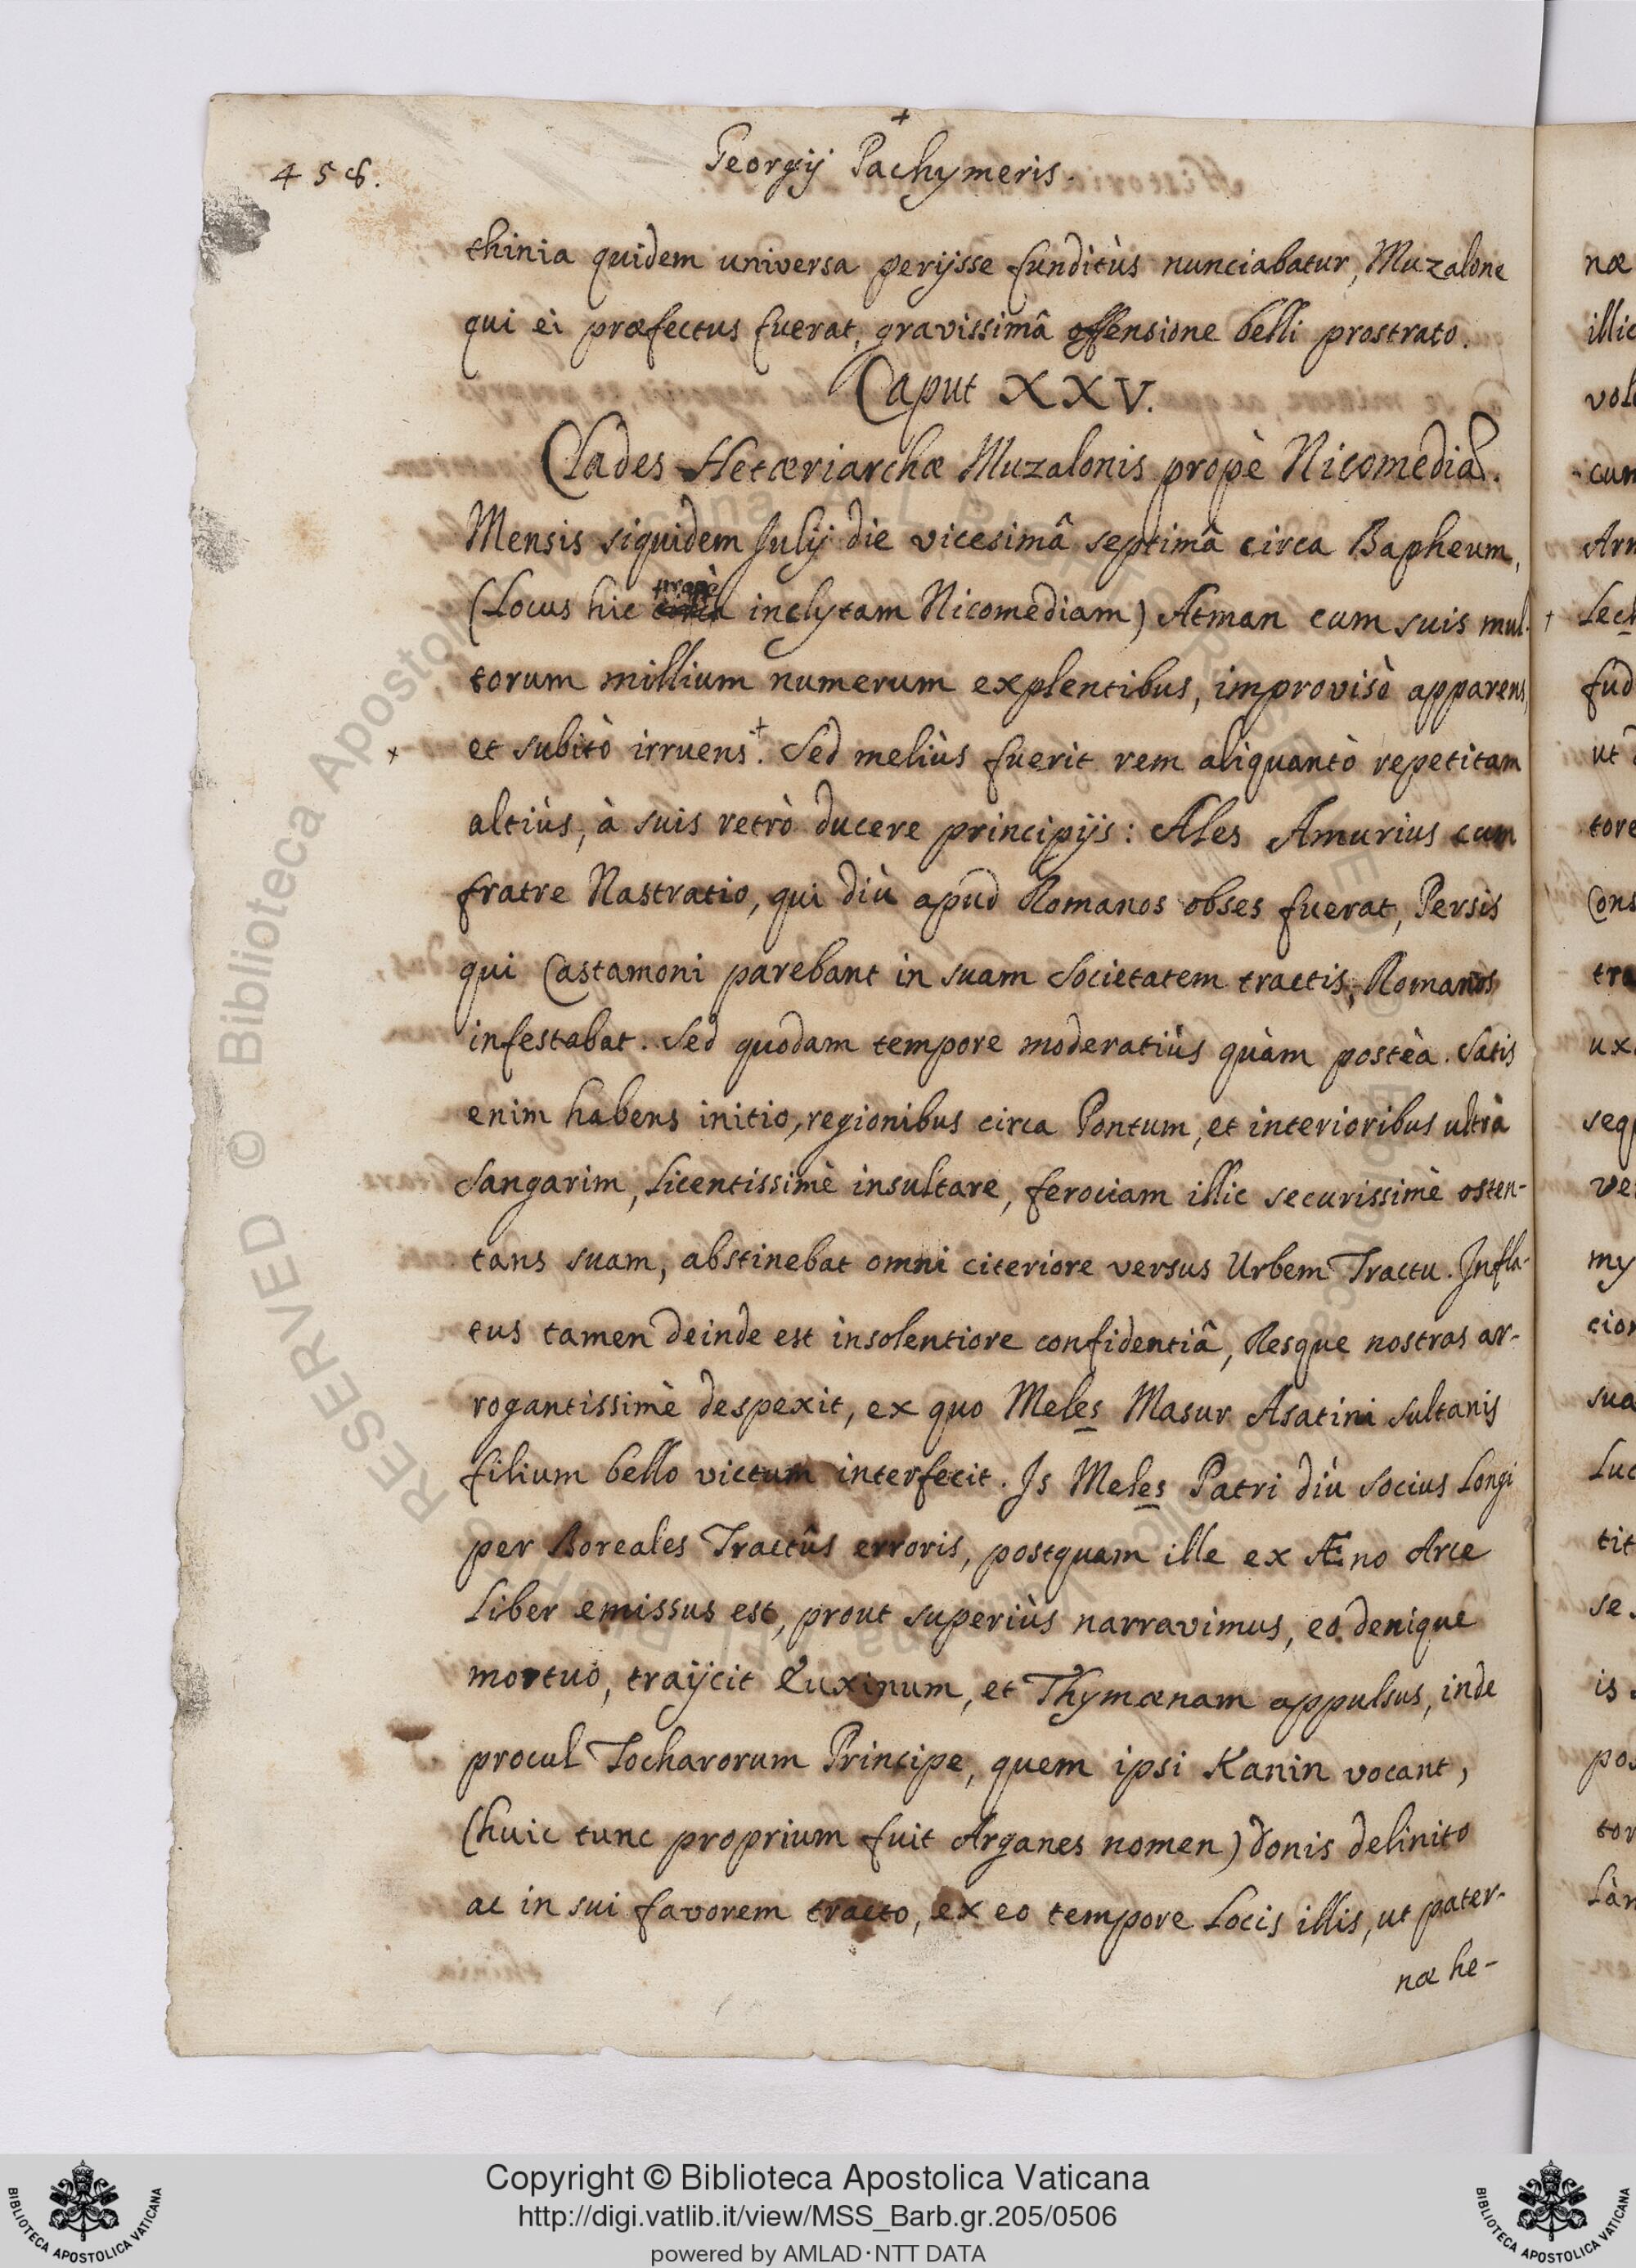 456.
Georgij Pachymeris.
thinia quidem universa perijsse funditùs nunciabatur, Muzalone
qui ei præfectus fuerat, gravissimâ offensione belli prostrato.
Caput XXV.
Clades Hetæriarchæ Muzalonis propè Nicomediã.
Mensis siquidem Julij die vicesimâ septimâ circa Bapheum,
(Locus hic propè inclytam Nicomediam) Atman cum suis mul-
torum millium numerum explentibus, improvisò apparens,
x et subitò irruens+. Sed meliùs fuerit rem aliquantò repetitam
altiùs, à suis retrò ducere principijs: Ales Amurius cum
fratre Nastratio, qui diù apud Romanos obses fuerat, Persis
qui Castamoni parebant in suam Societatem tractis, Romanos
infestabat. Sed quodam tempore moderatiùs quàm posteà. Satis
enim habens initio, regionibus circa Pontum, et interioribus ultrà
Sangarim, Licentissimè insultare, ferociam illic securissimè osten-
tans suam, abstinebat omni citeriore versus Urbem Tractu. Infla-
tus tamen deinde est insolentiore confidentiâ, Resque nostras ar-
rogantissimè despexit, ex quo Meles Masur Asatini Sultanis
filium bello victum interfecit. Is Meles Patri diù Socius Longi
per Boreales Tractûs erroris, postquam ille ex Æno Arce
Liber emissus est, prout superiùs narravimus, eo denique
mortuo, traijcit Euxinum, et Thymænam appulsus, inde
procul Tocharorum Principe, quem ipsi Kanin vocant,
(huic tunc proprium fuit Arganes nomen) donis delinito
ac in sui favorem tracto, ex eo tempore Locis illis, ut pater-
næ he-
næ
illic
cum
+
fud
ut
tore
Cons
tra
ux
seq
ve
my
cion
sua
Luc
tit
se
is
pos
tor
Copyright © Biblioteca Apostolica Vaticana
http://digi.vatlib.it/view/MSS_Barb.gr.205/0506
powered by AMLAD·NTT DATA
BIBLIOTECA APOSTOLICA VATICANA
BIBLIOTECA APOSTOLICA VATICANA